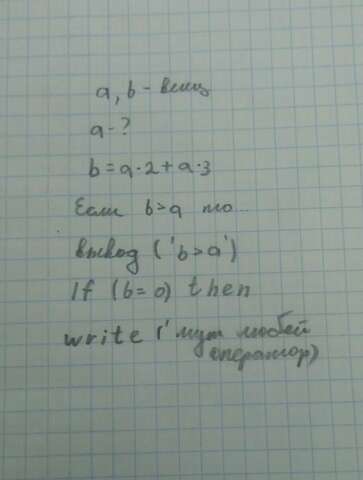 a, b - вещ
a - ?
b = a · 2 + a · 3
Если b > a то...
вывод ('b>a')
If (b = 0) then
write ('тут любой
оператор)